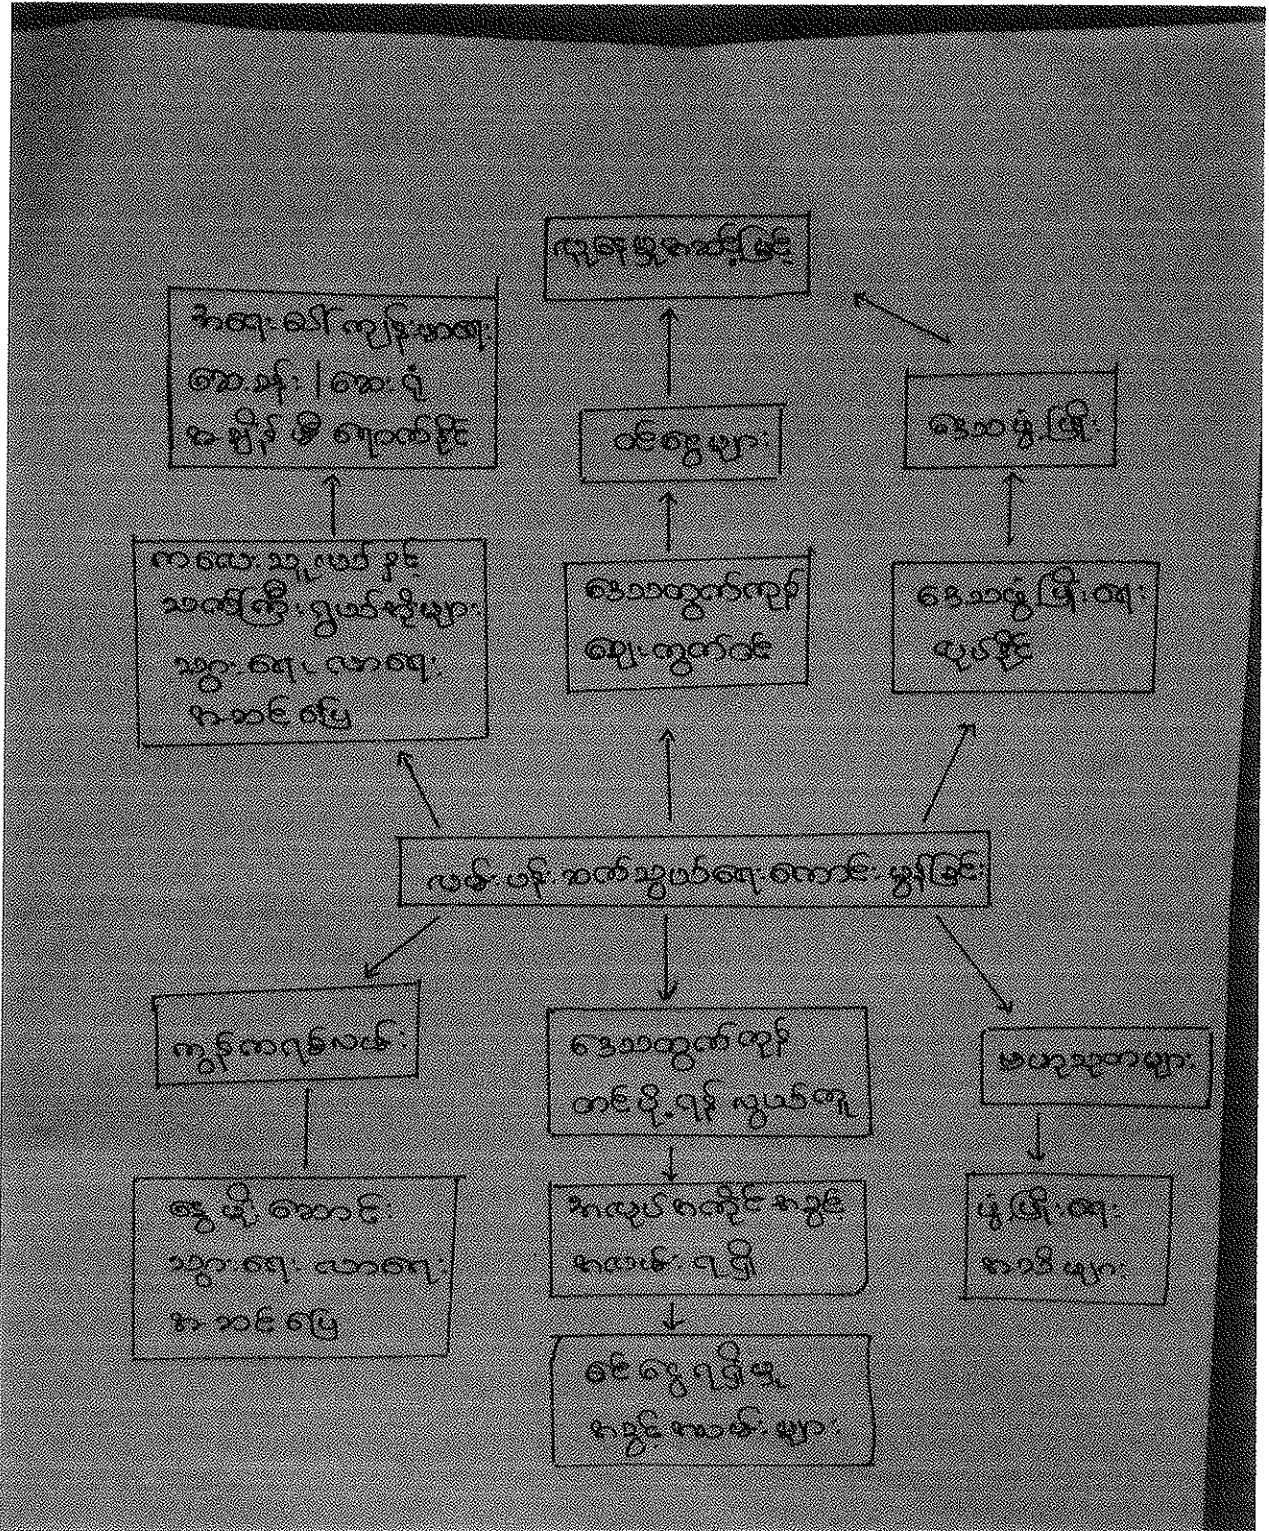 လူနေမှုအဆင့်မြင့်
အရေးပေါ် ကျန်းမာရေး
ဆေးခန်း | ဆေးရုံ
အချိန် မီ ရောက်နိုင်
ဝင်ငွေများ
ဒေသဖွံ့ဖြိုး
ကလေးသူငယ် နှင့်
သက်ကြီးရွယ်အိုများ
သွားရေး လာရေး
အဆင်ပြေ
ဒေသထွက်ကုန်
ဈေးကွက်ဝင်
ဒေသဖွံ့ဖြိုးရေး
လုပ်နိုင်
လမ်းပန်းဆက်သွယ်ရေးကောင်းမွန်ခြင်း
ကျွန်ကရစ်လမ်း
ဒေသထွက်ကုန်
တင်ပို့ရန် လွယ်ကူ
ဗဟုသုတများ
နွေ မိုး ဆောင်း
သွားရေး လာရေး
အဆင်ပြေ
အလုပ်အကိုင်အခွင့်
အလမ်း ရရှိ
ဖွံ့ဖြိုးရေး
အသိများ
ဝင်ငွေရရှိမှု
အခွင့်အလမ်းများ